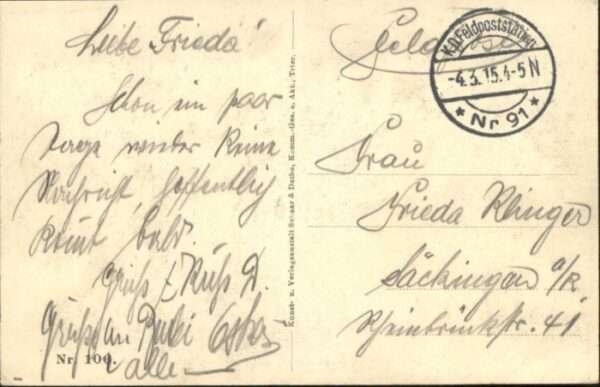 Liebe Frieda!
Schon ein paar
Tage wieder keine
Nachricht, hoffentlich
komt bald.
Gruß & Kuß D.
Grüße an
alle
Nr. 100.
Kunst- u. Verlagsanstalt Schaar & Dathe, Komm.-Ges. a. Akt., Trier.
Feldpost
K.D.Feldpoststation
-4.3.15.4-5N
* Nr 91 *
Frau
Frieda Klinger
Säckingen a/R
Rheinbrückstr. 41